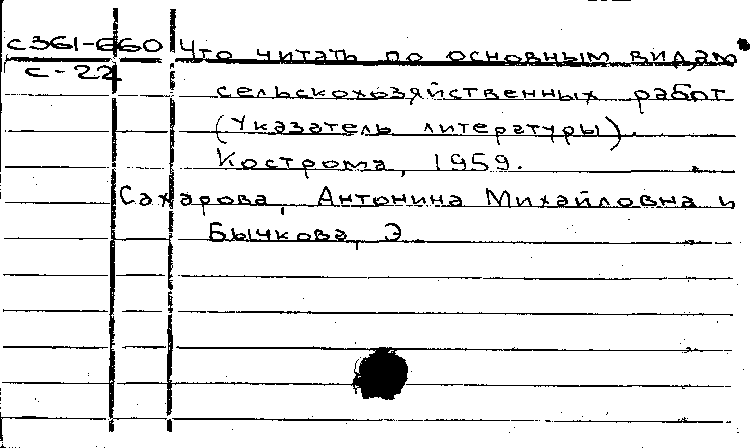 с361-660 Что читать по основным видам
с-22
сельскохозяйственных работ
(Указатель литературы).
Кострома, 1959.
Сахарова, Антонина Михайловна и
Бычкова, Э.